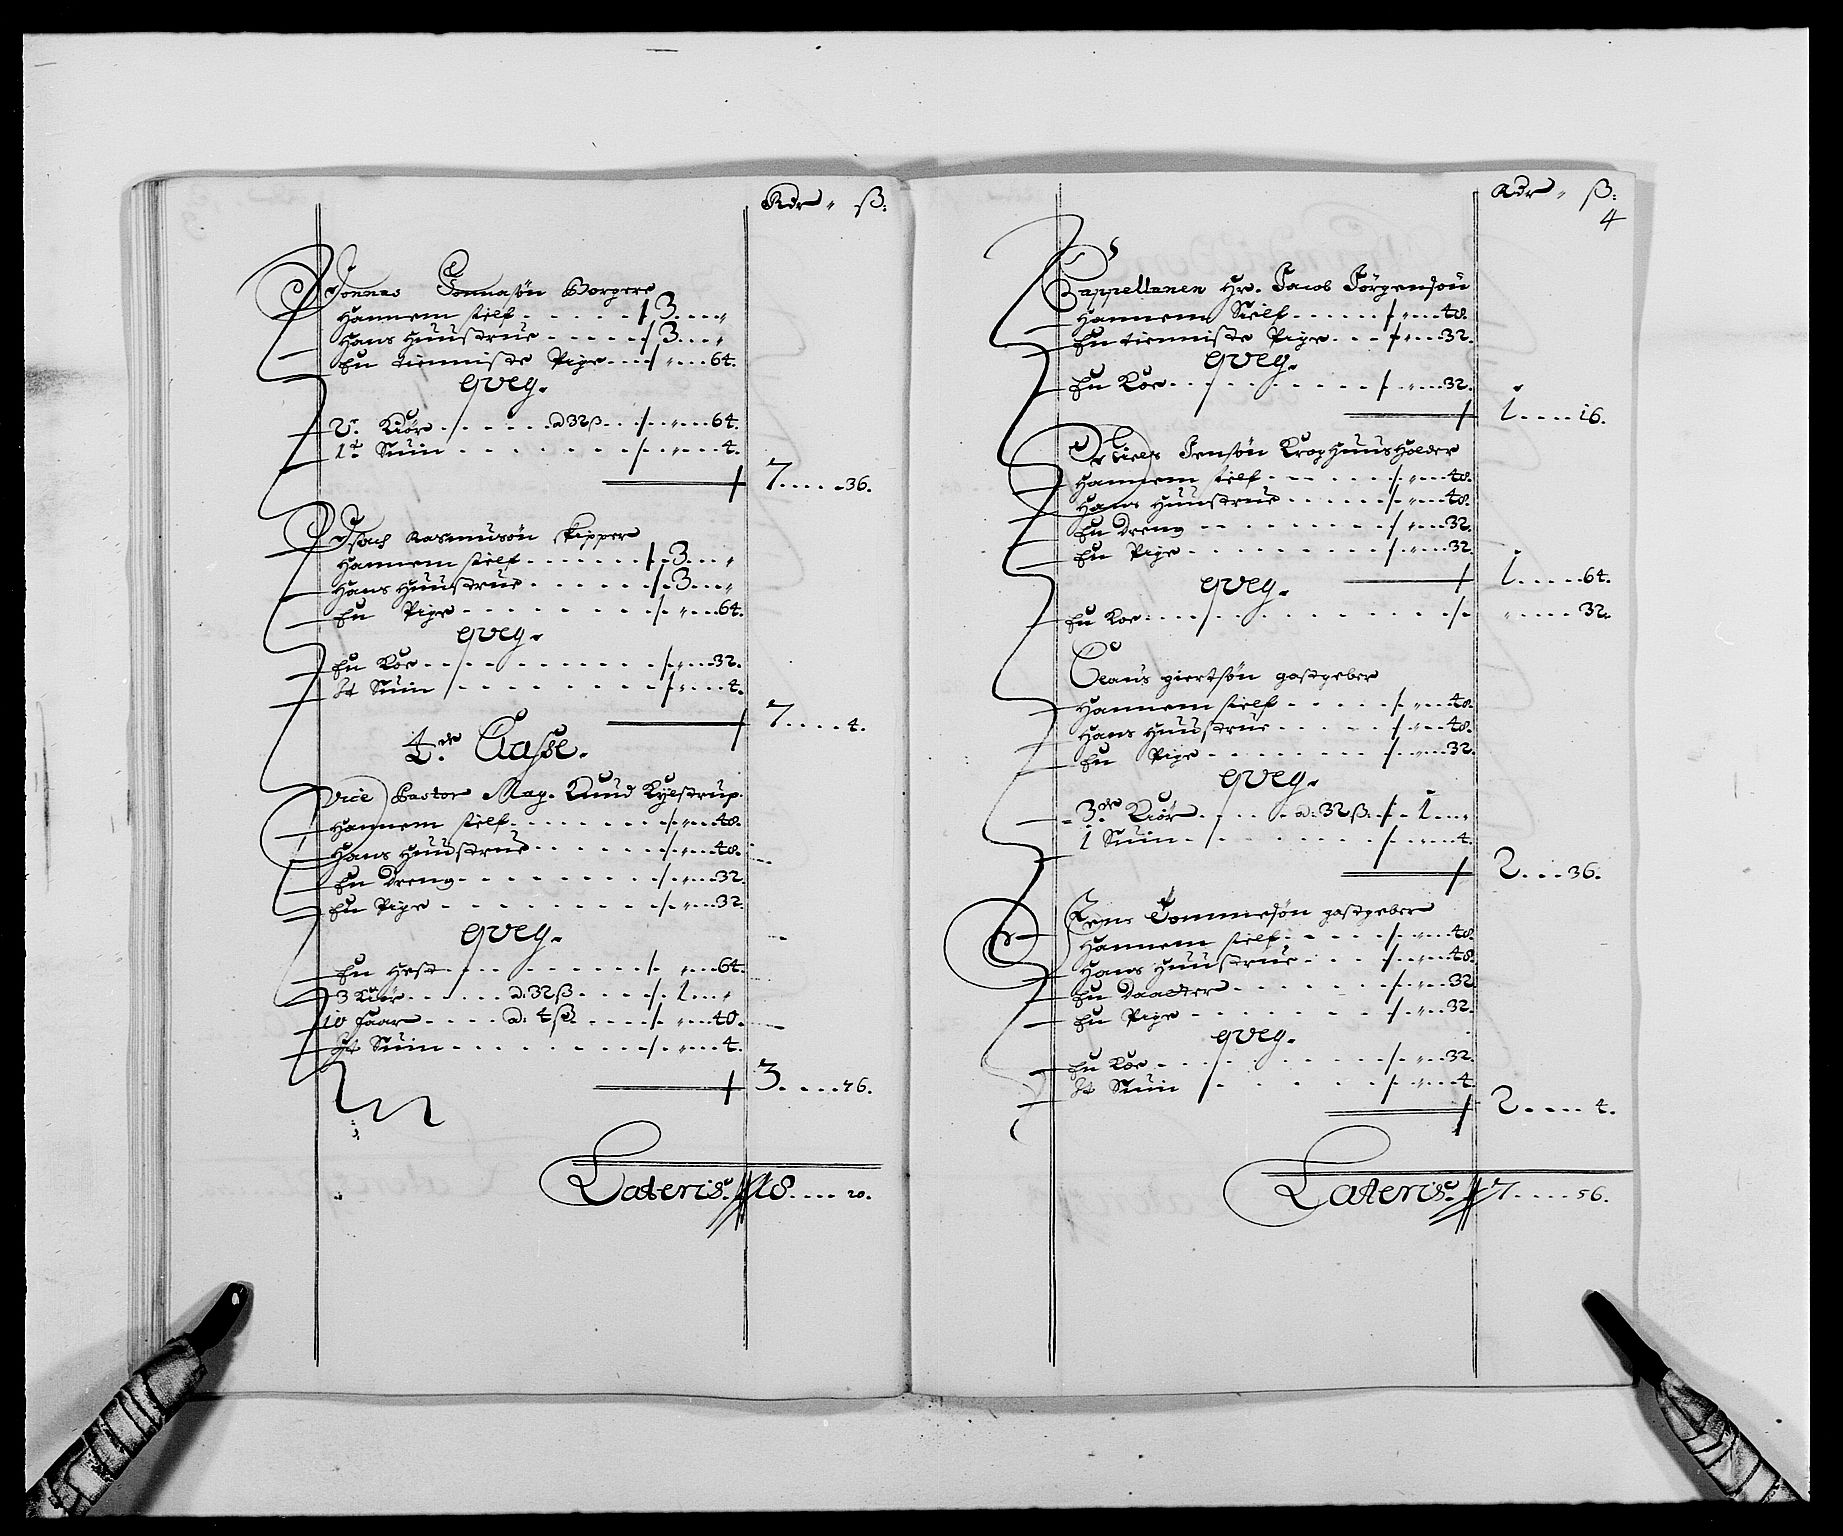 Rdr „ ß:
Jonnas Jonnasøn Borgere
Hannem sielf - - - - - 3 - - „
Hans Huustrue - - - - - 3 - - „
En tienniste Pige - - - „ - - 64.
qveg.
2de Kiør - - - - a 32 ß - - „ - - 64.
1t Suin - - - - - - - „ - - 4.
7 - - - - 36.
Isach Rasmusøn skipper
Hannem sielf - - - - - - 3 - - „
Hans Huustrue - - - - - - 3 - - „
En Pige - - - - - - - „ - - 64.
qveg.
En Koe - - - - - - - „ - - 32.
It Suin - - - - - - - „ - - 4.
7 - - - - 4.
4de Classe.
Vice Pastor Mag. Knud Kylstrup.
Hannem sielf - - - - - - „ - - 48.
Hans Huustrue - - - - - - „ - - 48.
En Dreng - - - - - - - „ - - 32.
En Pige - - - - - - - „ - - 32.
qveg.
En Hest - - - - - - - „ - - 64.
3 Kiør - - - - a: 32 ß - - - 1 - - „
10 Faar - - - - a: 4 ß - - - „ - - 40.
It Suin - - - - - - - „ - - 4.
3 - - - - 76.
Lateris 18 - - - - 20.
Rdr „ ß:
4
Cappellanen Hr. Jacob Jörgensøn
Hannem Sielf - - - - - - „ - - 48.
En tienniste Pige - - - - „ - - 32.
qveg.
En Koe - - - - - - - „ - - 32.
1 - - - - 16.
Niels Jensøn KroghuusHolder
Hannem sielf - - - - - - „ - - 48.
Hans Huustrue - - - - - - „ - - 48.
En Dreng - - - - - - - „ - - 32.
En Pige - - - - - - - „ - - 32.
1 - - - - 64.
qveg.
En Koe - - - - - - - „ - - - - 32.
Claus giertsøn gastgeber
Hannem sielf - - - - - - „ - - 48.
Hans Huustrue - - - - - - „ - - 48.
En Pige - - - - - - - „ - - 32.
qveg.
3de Kiør - - - - a: 32 ß: - - 1 - - „
1 Suin - - - - - - - „ - - 4.
2 - - - 36.
Jens Tommesøn gastgeber
Hannem sielf - - - - - - „ - - 48.
Hans Huustrue - - - - - - „ - - 48.
En Daatter - - - - - - - „ - - 32
En Pige - - - - - - - „ - - 32.
qveg.
En Koe - - - - - - - „ - - 32.
It Suin - - - - - - - „ - - 4.
2 - - - - 4.
Lateris 7 - - - - 56.